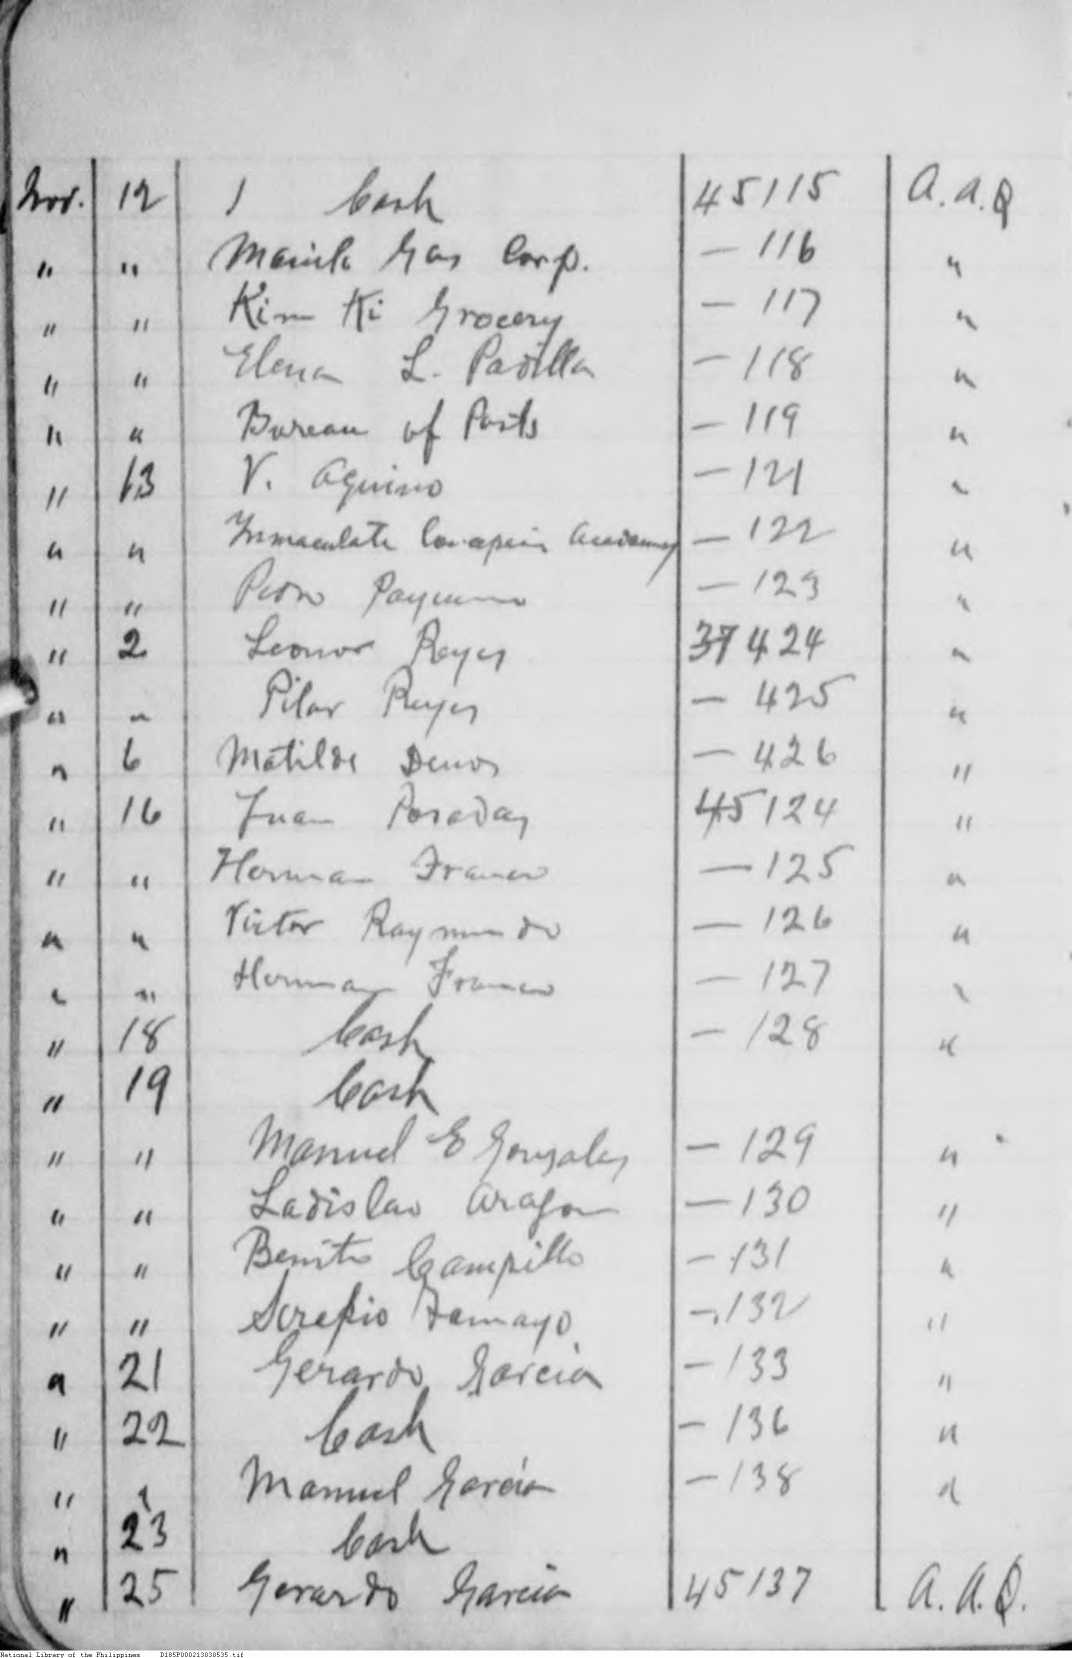 Nov. 12 1 Cash 45115 A.A.Q
" " Manila Gas Corp. — 116 "
" " Kim Ki Grocery — 117 "
" " Elena L. Padilla — 118 "
" " Bureau of Posts — 119 "
" 13 V. Aquino — 121 "
" " Immaculate Academy — 122 "
" " — 123 "
" 2 Leonor Reyes 37424 "
" " Pilar Reyes — 425 "
" 6 Matilde — 426 "
" 16 Juan Posadas 45124 "
" " Herman Franco — 125 "
" " Victor Raymundo — 126 "
" " Herman Franco — 127 "
" 18 Cash — 128 "
" 19 Cash
" " Manuel E Gonzales — 129 "
" " Ladislao Aragon — 130 "
" " Benito Campillo — 131 "
" " Serapio Tamayo — 132 "
" 21 Gerardo Garcia — 133 "
" 22 Cash — 136 "
" " Manuel Garcia — 138 "
" 23 Cash
" 25 Gerardo Garcia 45137 A.A.Q.
National Library of the Philippines D185P000213838535.tif